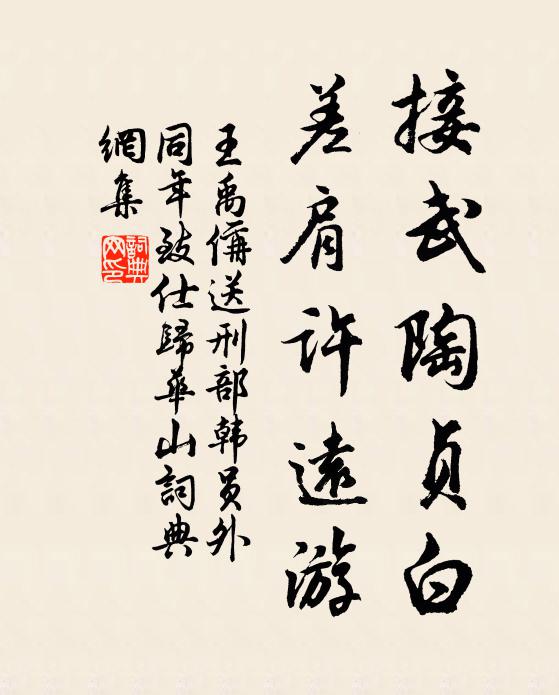 接武陶贞白
差肩许远游
王禹偁送刑部韩员外
同年致仕归华山词典
网集
词典
网印